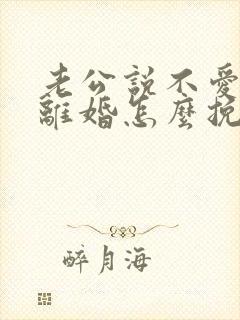 老公説不愛
離婚怎麽挽
醉月海